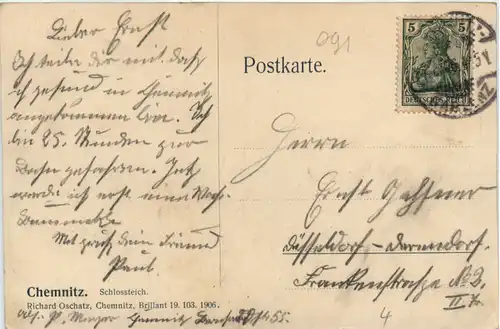 Lieber Ernst
Ich teile dir mit, daß
ich gesund in Chemnitz
angekommen bin. Ich
bin 25. Stunden zur
Bahn gefahren. Jetzt
werde ich erst eine
Mit gruß dein Freund
Paul.
Chemnitz. Schlossteich.
Richard Oschatz, Chemnitz, Brillant 19. 103. 1906.
abs. P. Chemnitz 55.
091
Postkarte.
5 5
DEUTSCHES REICH
Herrn
Ernst
Düsseldorf-Derendorf.
Frankenstraße No 2.
II Tr.
4